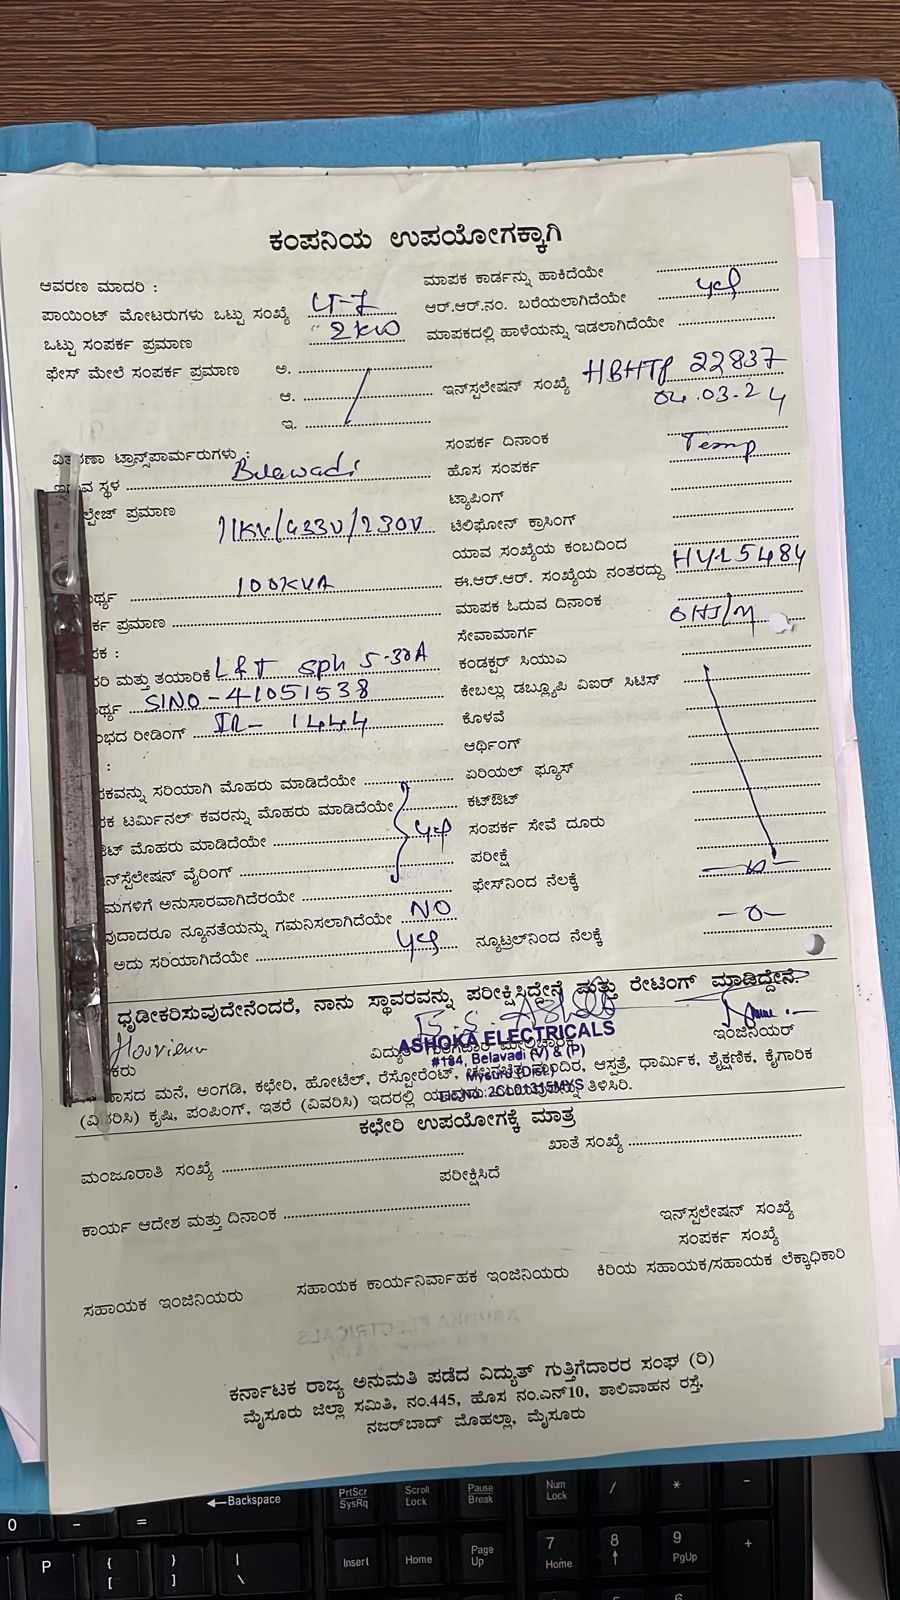 ಕಂಪನಿಯ ಉಪಯೋಗಕ್ಕಾಗಿ
ಆವರಣ ಮಾದರಿ :
ಪಾಯಿಂಟ್ ಮೋಟರುಗಳು ಒಟ್ಟು ಸಂಖ್ಯೆ LT-7
ಒಟ್ಟು ಸಂಪರ್ಕ ಪ್ರಮಾಣ 2 kw
ಫೇಸ್ ಮೇಲೆ ಸಂಪರ್ಕ ಪ್ರಮಾಣ ಅ.
ಆ.
ಇ.
ವಿತರಣಾ ಟ್ರಾನ್ಸ್‌ಫಾರ್ಮರುಗಳು :
ಇರುವ ಸ್ಥಳ Belawadi
ಲ್ಟೇಜ್ ಪ್ರಮಾಣ
11KV/433V/230V
ರ್ಥ್ಯ 100KVA
ರ್ಕ ಪ್ರಮಾಣ
ಪಕ :
ರಿ ಮತ್ತು ತಯಾರಿಕೆ L&T Sph 5-30A
ರ್ಥ್ಯ SlNO-41051538
ಂಭದ ರೀಡಿಂಗ್ IR- 1444
:
ಪಕವನ್ನು ಸರಿಯಾಗಿ ಮೊಹರು ಮಾಡಿದೆಯೇ
ಪಕ ಟರ್ಮಿನಲ್ ಕವರನ್ನು ಮೊಹರು ಮಾಡಿದೆಯೇ
ಔಟ್ ಮೊಹರು ಮಾಡಿದೆಯೇ yes
ನ್‌ಸ್ಟೆಲೇಷನ್ ವೈರಿಂಗ್
ಮಗಳಿಗೆ ಅನುಸಾರವಾಗಿದೆರಯೇ
ವುದಾದರೂ ನ್ಯೂನತೆಯನ್ನು ಗಮನಿಸಲಾಗಿದೆಯೇ NO
ಅದು ಸರಿಯಾಗಿದೆಯೇ yes
ಮಾಪಕ ಕಾರ್ಡನ್ನು ಹಾಕಿದೆಯೇ
ಆರ್.ಆರ್.ನಂ. ಬರೆಯಲಾಗಿದೆಯೇ yes
ಮಾಪಕದಲ್ಲಿ ಹಾಳೆಯನ್ನು ಇಡಲಾಗಿದೆಯೇ
ಇನ್‌ಸ್ಟಲೇಷನ್ ಸಂಖ್ಯೆ HBHTP 22837
04.03.24
ಸಂಪರ್ಕ ದಿನಾಂಕ
ಹೊಸ ಸಂಪರ್ಕ Temp
ಟ್ಯಾಪಿಂಗ್
ಟೆಲಿಫೋನ್ ಕ್ರಾಸಿಂಗ್
ಯಾವ ಸಂಖ್ಯೆಯ ಕಂಬದಿಂದ
ಈ.ಆರ್.ಆರ್. ಸಂಖ್ಯೆಯ ನಂತರದ್ದು HYL5484
ಮಾಪಕ ಓದುವ ದಿನಾಂಕ
ಸೇವಾಮಾರ್ಗ
ಕಂಡಕ್ಟರ್ ಸಿಯುಎ
ಕೇಬಲ್ಲು ಡಬ್ಲ್ಯೂಪಿ ವಿಐರ್ ಸಿಟಿಸ್
ಕೊಳವೆ
ಆರ್ಥಿಂಗ್
ಏರಿಯಲ್ ಫ್ಯೂಸ್
ಕಟ್‌ಔಟ್
ಸಂಪರ್ಕ ಸೇವೆ ದೂರು
ಪರೀಕ್ಷೆ
ಫೇಸ್‌ನಿಂದ ನೆಲಕ್ಕೆ
ನ್ಯೂಟ್ರಲ್‌ನಿಂದ ನೆಲಕ್ಕೆ -0-
ಧೃಡೀಕರಿಸುವುದೇನೆಂದರೆ, ನಾನು ಸ್ಥಾವರವನ್ನು ಪರೀಕ್ಷಿಸಿದ್ದೇನೆ ಮತ್ತು ರೇಟಿಂಗ್ ಮಾಡಿದ್ದೇನೆ.
ASHOKA ELECTRICALS
#184, Belavadi (V) & (P)
Mysuru (Dist.)
ಇಂಜಿನಿಯರ್
ಕರು
ವಾಸದ ಮನೆ, ಅಂಗಡಿ, ಕಛೇರಿ, ಹೋಟೆಲ್, ರೆಸ್ಟೋರೆಂಟ್, ಆಸ್ಪತ್ರೆ, ಧಾರ್ಮಿಕ, ಶೈಕ್ಷಣಿಕ, ಕೈಗಾರಿಕ
(ವಿವರಿಸಿ) ಕೃಷಿ, ಪಂಪಿಂಗ್, ಇತರೆ (ವಿವರಿಸಿ) ಇದರಲ್ಲಿ ತಿಳಿಸಿರಿ.
ಕಛೇರಿ ಉಪಯೋಗಕ್ಕೆ ಮಾತ್ರ
ಮಂಜೂರಾತಿ ಸಂಖ್ಯೆ ಖಾತೆ ಸಂಖ್ಯೆ
ಪರೀಕ್ಷಿಸಿದೆ
ಕಾರ್ಯ ಆದೇಶ ಮತ್ತು ದಿನಾಂಕ
ಇನ್‌ಸ್ಟಲೇಷನ್ ಸಂಖ್ಯೆ
ಸಂಪರ್ಕ ಸಂಖ್ಯೆ
ಸಹಾಯಕ ಇಂಜಿನಿಯರು ಸಹಾಯಕ ಕಾರ್ಯನಿರ್ವಾಹಕ ಇಂಜಿನಿಯರು ಕಿರಿಯ ಸಹಾಯಕ/ಸಹಾಯಕ ಲೆಕ್ಕಾಧಿಕಾರಿ
ಕರ್ನಾಟಕ ರಾಜ್ಯ ಅನುಮತಿ ಪಡೆದ ವಿದ್ಯುತ್ ಗುತ್ತಿಗೆದಾರರ ಸಂಘ (ರಿ)
ಮೈಸೂರು ಜಿಲ್ಲಾ ಸಮಿತಿ, ನಂ.445, ಹೊಸ ನಂ.ಎನ್10, ಶಾಲಿವಾಹನ ರಸ್ತೆ,
ನಜರ್‌ಬಾದ್ ಮೊಹಲ್ಲಾ, ಮೈಸೂರು
Backspace
PrtScr SysRq
Scroll Lock
Pause Break
Num Lock
/ * -
0 - =
P { [ } ] | \
Insert Home Page Up
7 Home 8 9 PgUp +